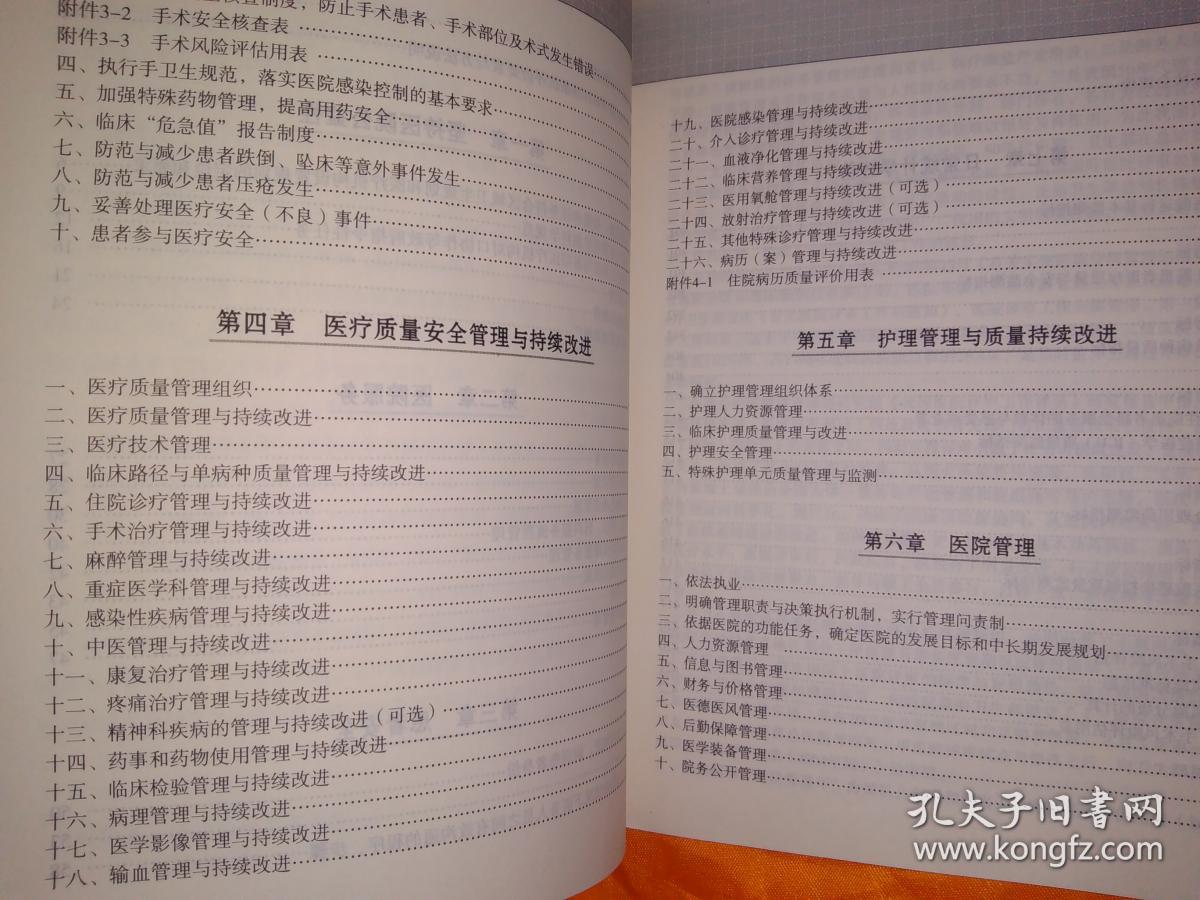 核查制度，防止手术患者、手术部位及术式发生错误
附件3-2 手术安全核查表
附件3-3 手术风险评估用表
四、执行手卫生规范，落实医院感染控制的基本要求
五、加强特殊药物管理，提高用药安全
六、临床“危急值”报告制度
七、防范与减少患者跌倒、坠床等意外事件发生
八、防范与减少患者压疮发生
九、妥善处理医疗安全（不良）事件
十、患者参与医疗安全
第四章 医疗质量安全管理与持续改进
一、医疗质量管理组织
二、医疗质量管理与持续改进
三、医疗技术管理
四、临床路径与单病种质量管理与持续改进
五、住院诊疗管理与持续改进
六、手术治疗管理与持续改进
七、麻醉管理与持续改进
八、重症医学科管理与持续改进
九、感染性疾病管理与持续改进
十、中医管理与持续改进
十一、康复治疗管理与持续改进
十二、疼痛治疗管理与持续改进
十三、精神科疾病的管理与持续改进（可选）
十四、药事和药物使用管理与持续改进
十五、临床检验管理与持续改进
十六、病理管理与持续改进
十七、医学影像管理与持续改进
十八、输血管理与持续改进
十九、医院感染管理与持续改进
二十、介入诊疗管理与持续改进
二十一、血液净化管理与持续改进
二十二、临床营养管理与持续改进
二十三、医用氧舱管理与持续改进（可选）
二十四、放射治疗管理与持续改进（可选）
二十五、其他特殊诊疗管理与持续改进
二十六、病历（案）管理与持续改进
附件4-1 住院病历质量评价用表
第五章 护理管理与质量持续改进
一、确立护理管理组织体系
二、护理人力资源管理
三、临床护理质量管理与改进
四、护理安全管理
五、特殊护理单元质量管理与监测
第六章 医院管理
一、依法执业
二、明确管理职责与决策执行机制，实行管理问责制
三、依据医院的功能任务，确定医院的发展目标和中长期发展规划
四、人力资源管理
五、信息与图书管理
六、财务与价格管理
七、医德医风管理
八、后勤保障管理
九、医学装备管理
十、院务公开管理
孔夫子旧书网
www.kongfz.com